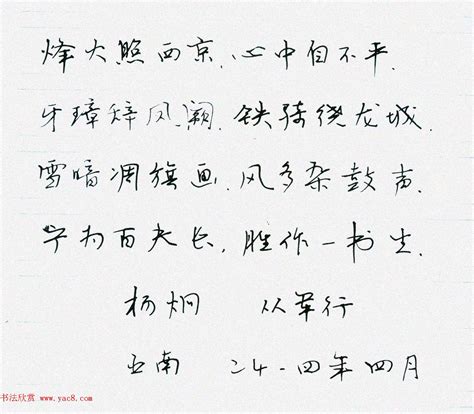 烽火照西京.心中自不平.
牙璋辞凤阙.铁骑绕龙城.
雪暗凋旗画.风多杂鼓声.
宁为百夫长,胜作一书生.
杨炯 从军行
南 二〇一四年四月
书法欣赏 www.yac8.com